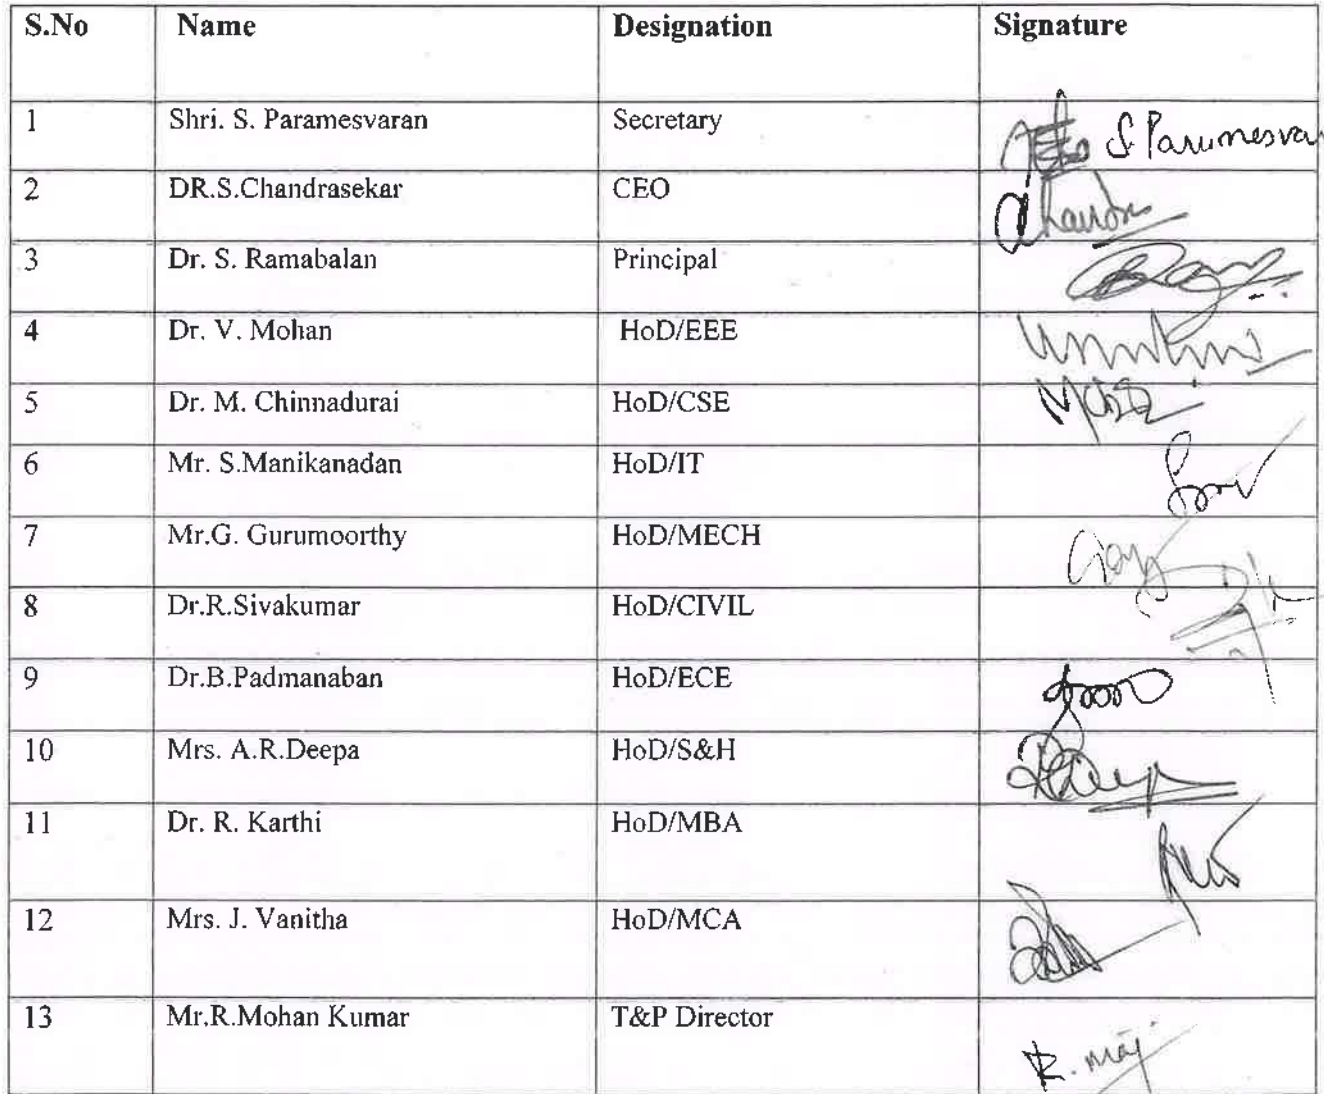 S.No Name Designation Signature
1 Shri. S. Paramesvaran Secretary S Paramesva
2 DR.S.Chandrasekar CEO
3 Dr. S. Ramabalan Principal
4 Dr. V. Mohan HoD/EEE
5 Dr. M. Chinnadurai HoD/CSE
6 Mr. S.Manikanadan HoD/IT
7 Mr.G. Gurumoorthy HoD/MECH
8 Dr.R.Sivakumar HoD/CIVIL
9 Dr.B.Padmanaban HoD/ECE
10 Mrs. A.R.Deepa HoD/S&H
11 Dr. R. Karthi HoD/MBA
12 Mrs. J. Vanitha HoD/MCA
13 Mr.R.Mohan Kumar T&P Director